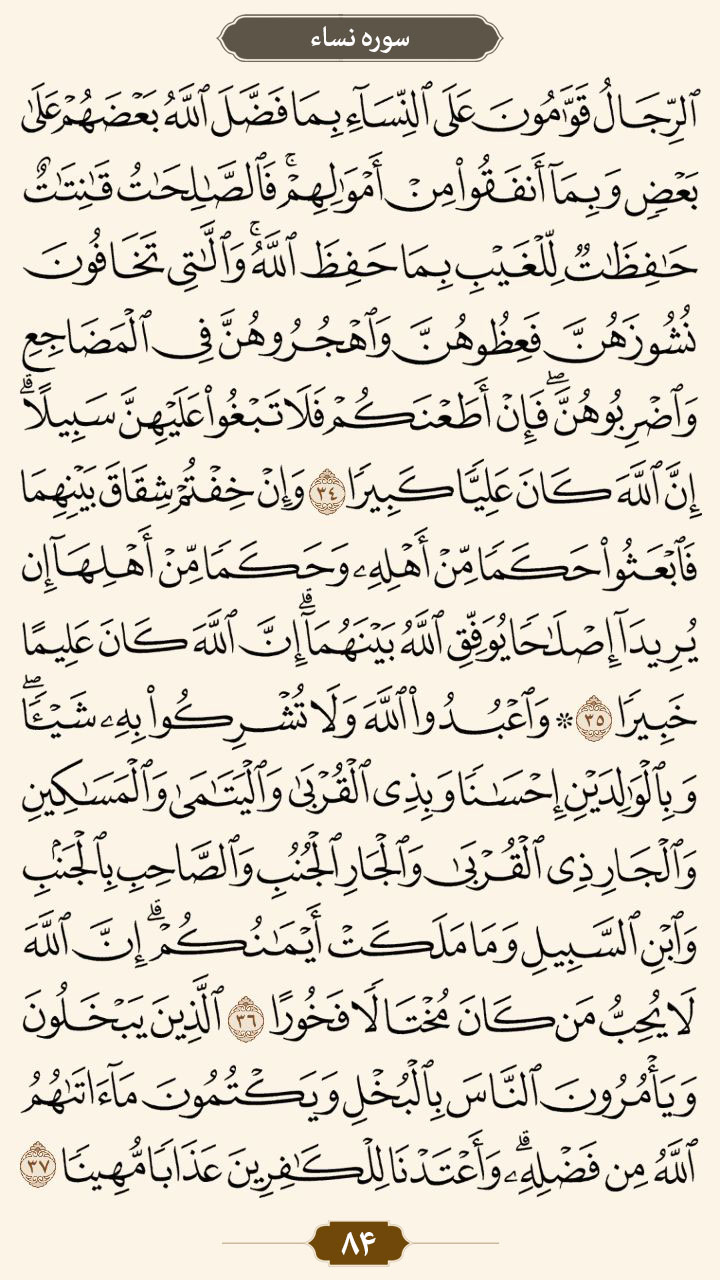 سوره نساء
ٱلرِّجَالُ قَوَّٰمُونَ عَلَى ٱلنِّسَآءِ بِمَا فَضَّلَ ٱللَّهُ بَعْضَهُمْ عَلَىٰ
بَعْضٍ وَبِمَآ أَنفَقُوا۟ مِنْ أَمْوَٰلِهِمْ ۚ فَٱلصَّٰلِحَٰتُ قَٰنِتَٰتٌ
حَٰفِظَٰتٌ لِّلْغَيْبِ بِمَا حَفِظَ ٱللَّهُ ۚ وَٱلَّٰتِى تَخَافُونَ
نُشُوزَهُنَّ فَعِظُوهُنَّ وَٱهْجُرُوهُنَّ فِى ٱلْمَضَاجِعِ
وَٱضْرِبُوهُنَّ ۖ فَإِنْ أَطَعْنَكُمْ فَلَا تَبْغُوا۟ عَلَيْهِنَّ سَبِيلًا ۗ
إِنَّ ٱللَّهَ كَانَ عَلِيًّا كَبِيرًا ٣٤ وَإِنْ خِفْتُمْ شِقَاقَ بَيْنِهِمَا
فَٱبْعَثُوا۟ حَكَمًا مِّنْ أَهْلِهِۦ وَحَكَمًا مِّنْ أَهْلِهَآ إِن
يُرِيدَآ إِصْلَٰحًا يُوَفِّقِ ٱللَّهُ بَيْنَهُمَآ ۗ إِنَّ ٱللَّهَ كَانَ عَلِيمًا
خَبِيرًا ٣٥ ❇ وَٱعْبُدُوا۟ ٱللَّهَ وَلَا تُشْرِكُوا۟ بِهِۦ شَيْـًٔا ۖ
وَبِٱلْوَٰلِدَيْنِ إِحْسَٰنًا وَبِذِى ٱلْقُرْبَىٰ وَٱلْيَتَٰمَىٰ وَٱلْمَسَٰكِينِ
وَٱلْجَارِ ذِى ٱلْقُرْبَىٰ وَٱلْجَارِ ٱلْجُنُبِ وَٱلصَّاحِبِ بِٱلْجَنۢبِ
وَٱبْنِ ٱلسَّبِيلِ وَمَا مَلَكَتْ أَيْمَٰنُكُمْ ۗ إِنَّ ٱللَّهَ
لَا يُحِبُّ مَن كَانَ مُخْتَالًا فَخُورًا ٣٦ ٱلَّذِينَ يَبْخَلُونَ
وَيَأْمُرُونَ ٱلنَّاسَ بِٱلْبُخْلِ وَيَكْتُمُونَ مَآ ءَاتَىٰهُمُ
ٱللَّهُ مِن فَضْلِهِۦ ۗ وَأَعْتَدْنَا لِلْكَٰفِرِينَ عَذَابًا مُّهِينًا ٣٧
۸۴